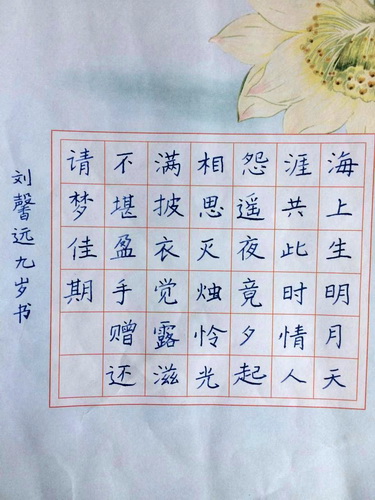 海上生明月天
涯共此时情人
怨遥夜竟夕起
相思灭烛怜光
满披衣觉露滋
不堪盈手赠还
请梦佳期
刘馨远九岁书